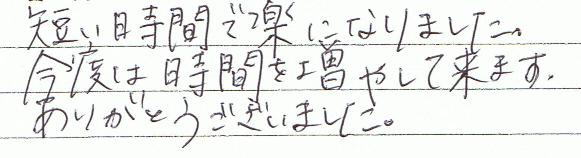 短い時間で楽になりました。
今度は時間を増やして来ます.
ありがとうございました。